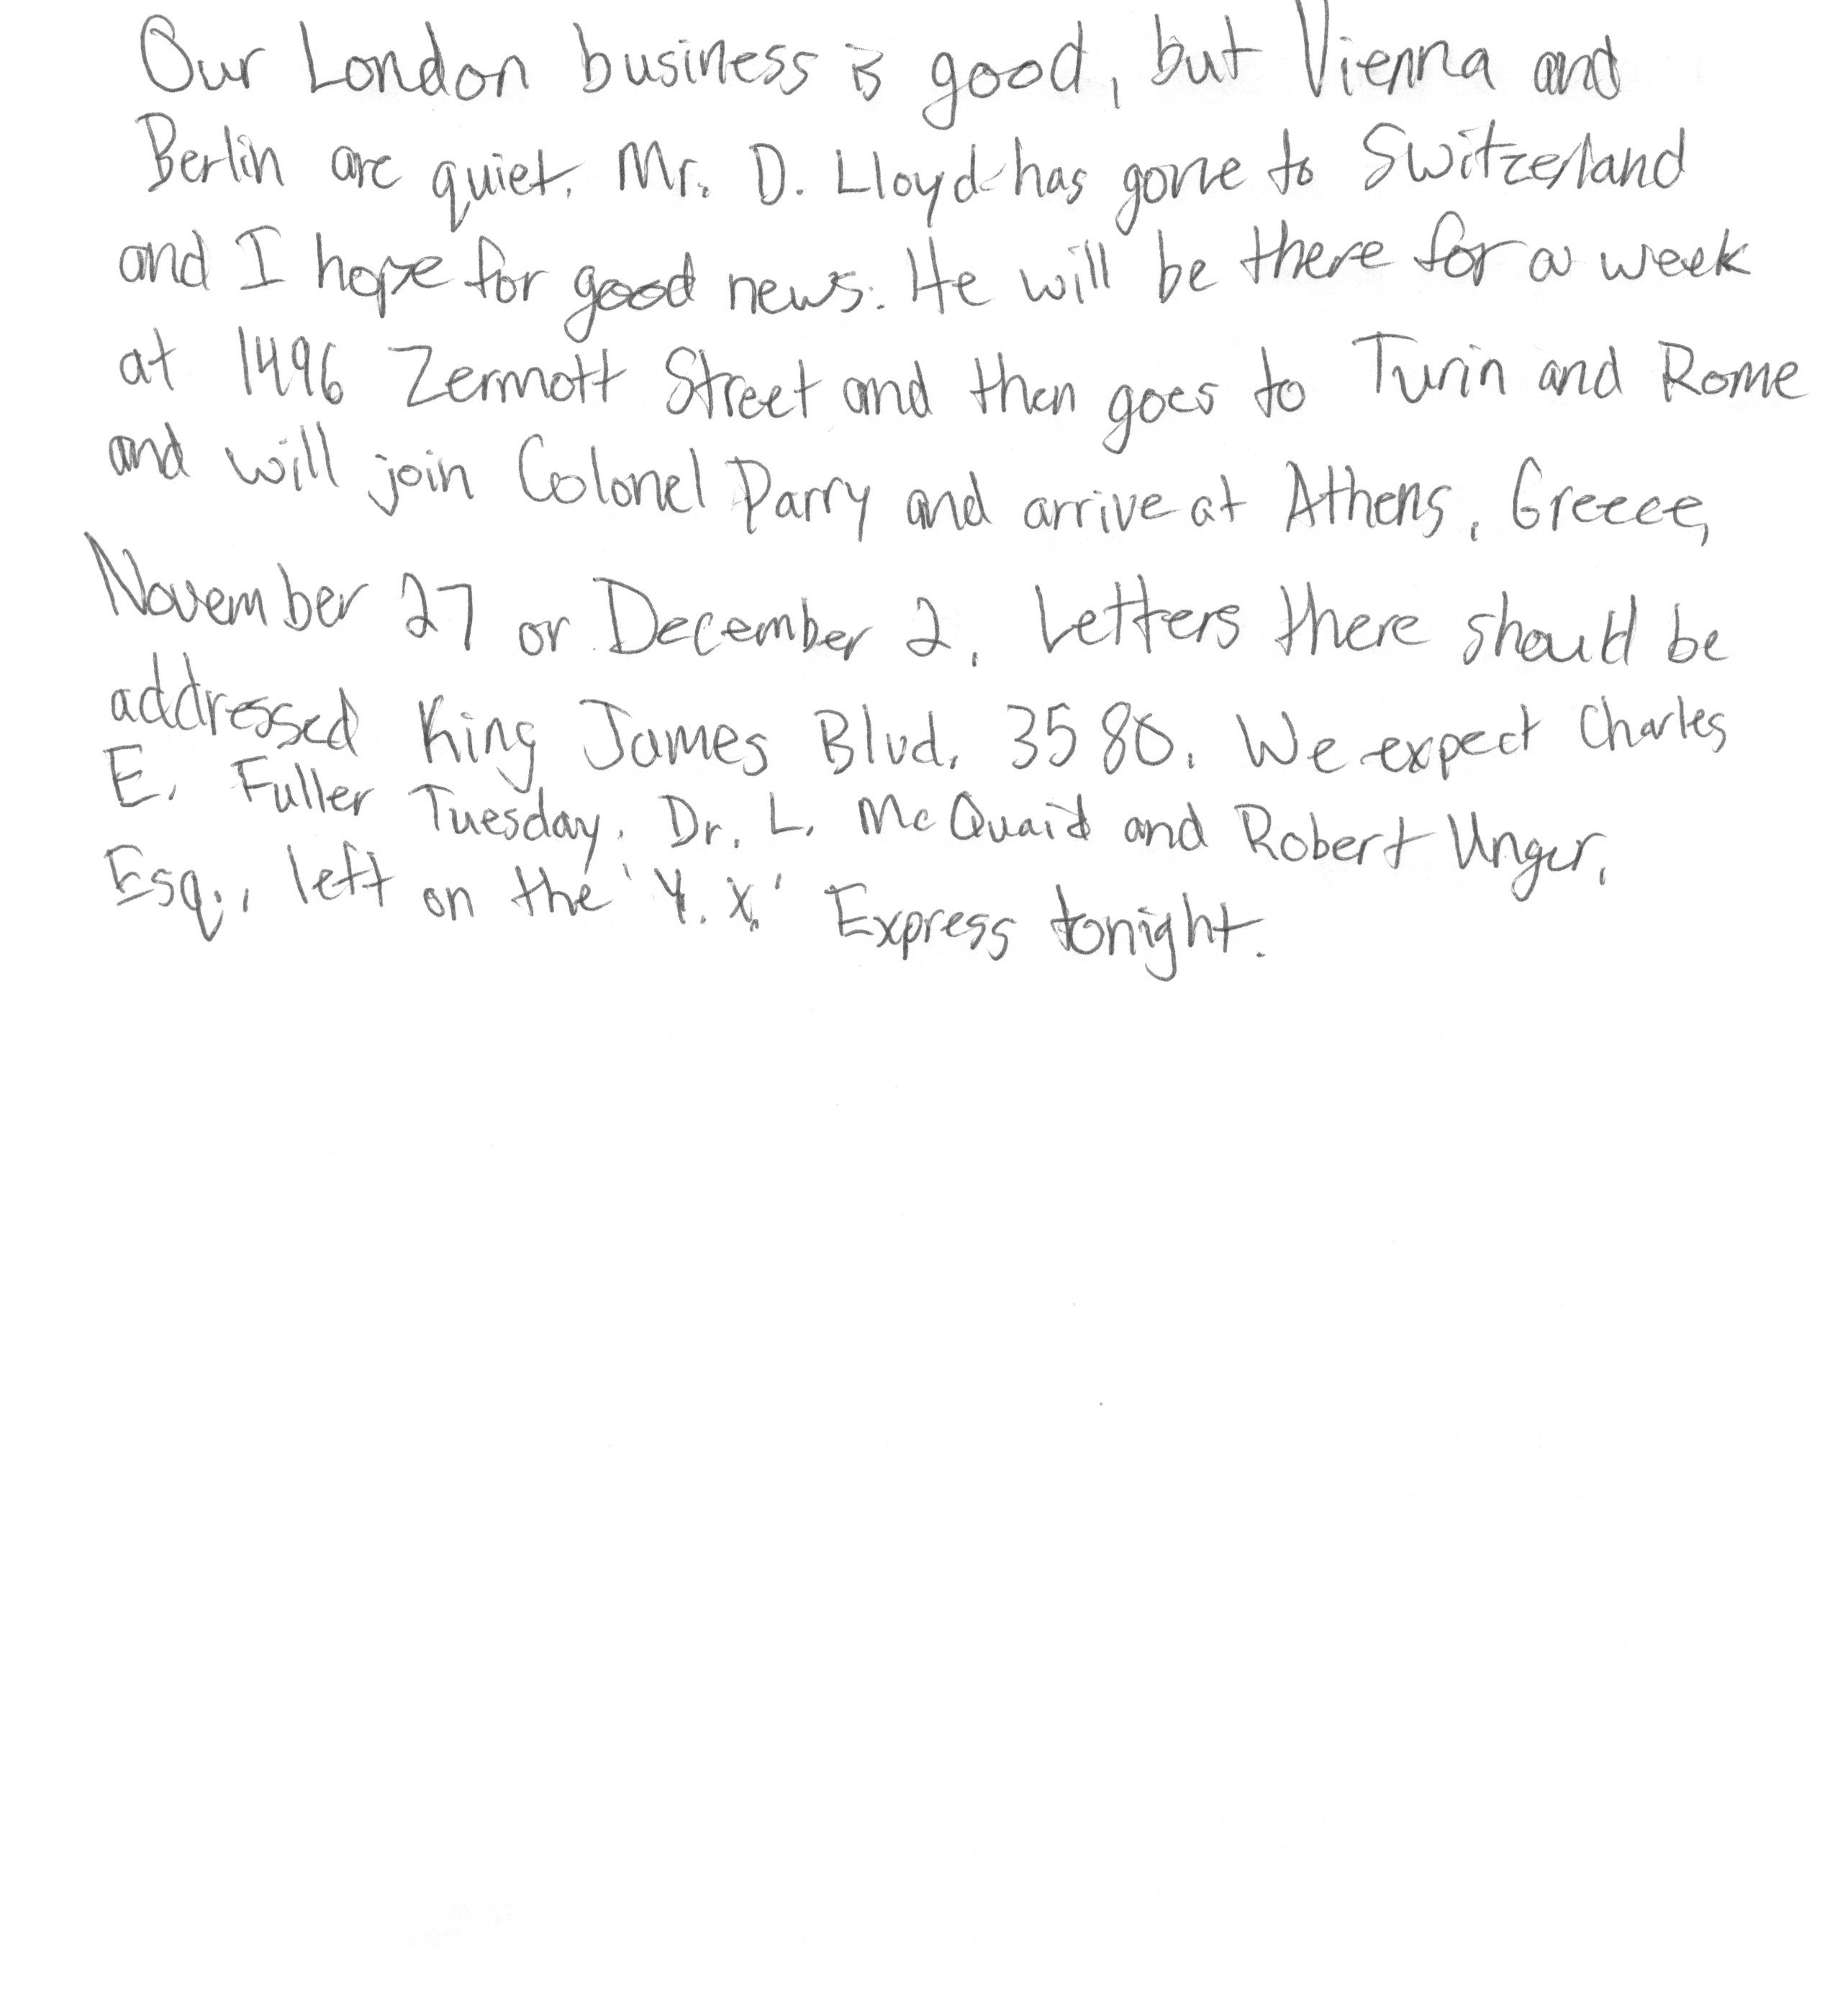 Our London business is good, but Vienna and
Berlin are quiet. Mr. D. Lloyd has gone to Switzerland
and I hope for good news. He will be there for a week
at 1496 Zermott Street and then goes to Turin and Rome
and will join Colonel Parry and arrive at Athens, Greece,
November 27 or December 2. Letters there should be
addressed King James Blvd. 3580. We expect Charles
E. Fuller Tuesday. Dr. L. McQuaid and Robert Unger,
Esq., left on the 'Y.X.' Express tonight.